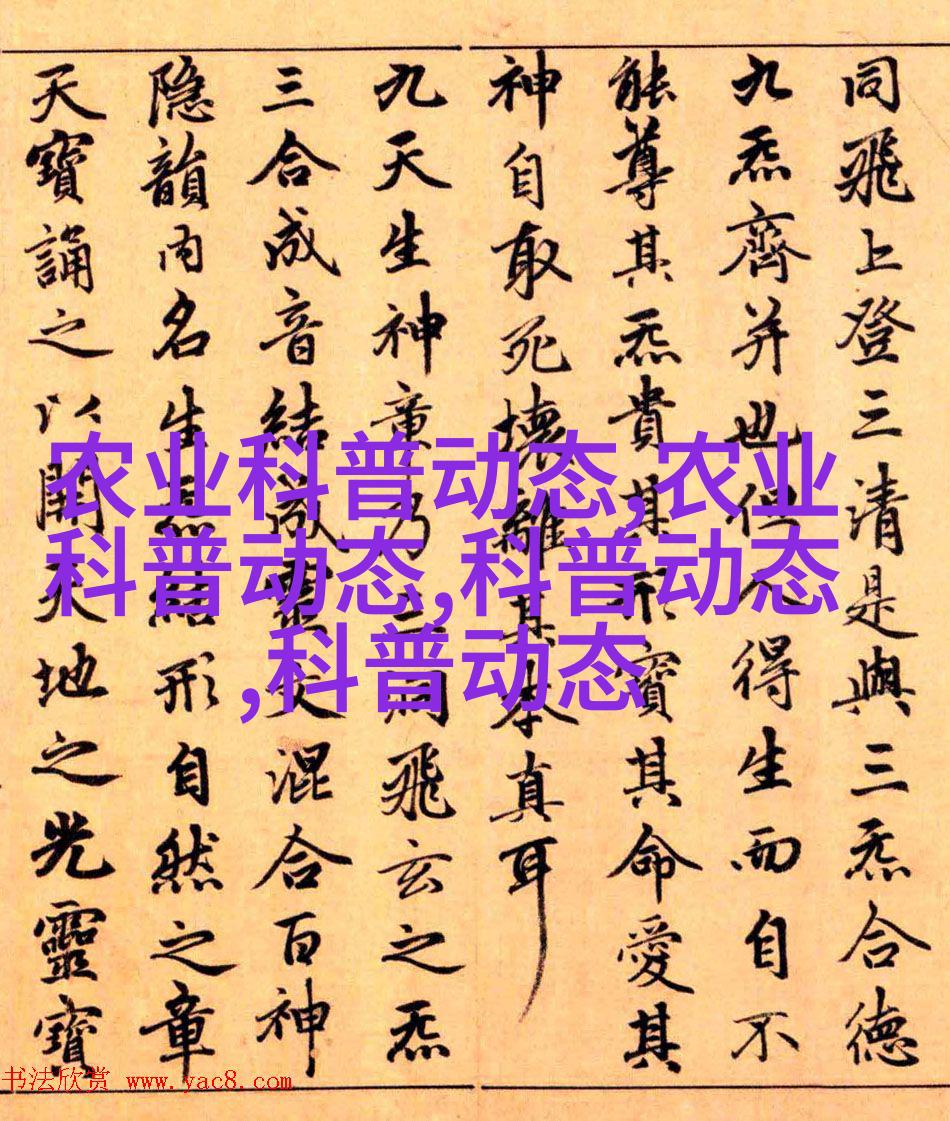 同飛上登三清是與三炁合德
九炁齊并也但不得生而自不
能尊其炁貴其形寳其命愛其
神自取死壊離其本真耳
九天生神章乃三洞飛玄之炁
三合成音結成靈文混合百神
隐韻内名生炁結形自然之章
天寶誦之以開天地之光靈寶
农业科普动态,农业
科普动态,科普动态
,科普动态
书法欣赏 www.yac8.com